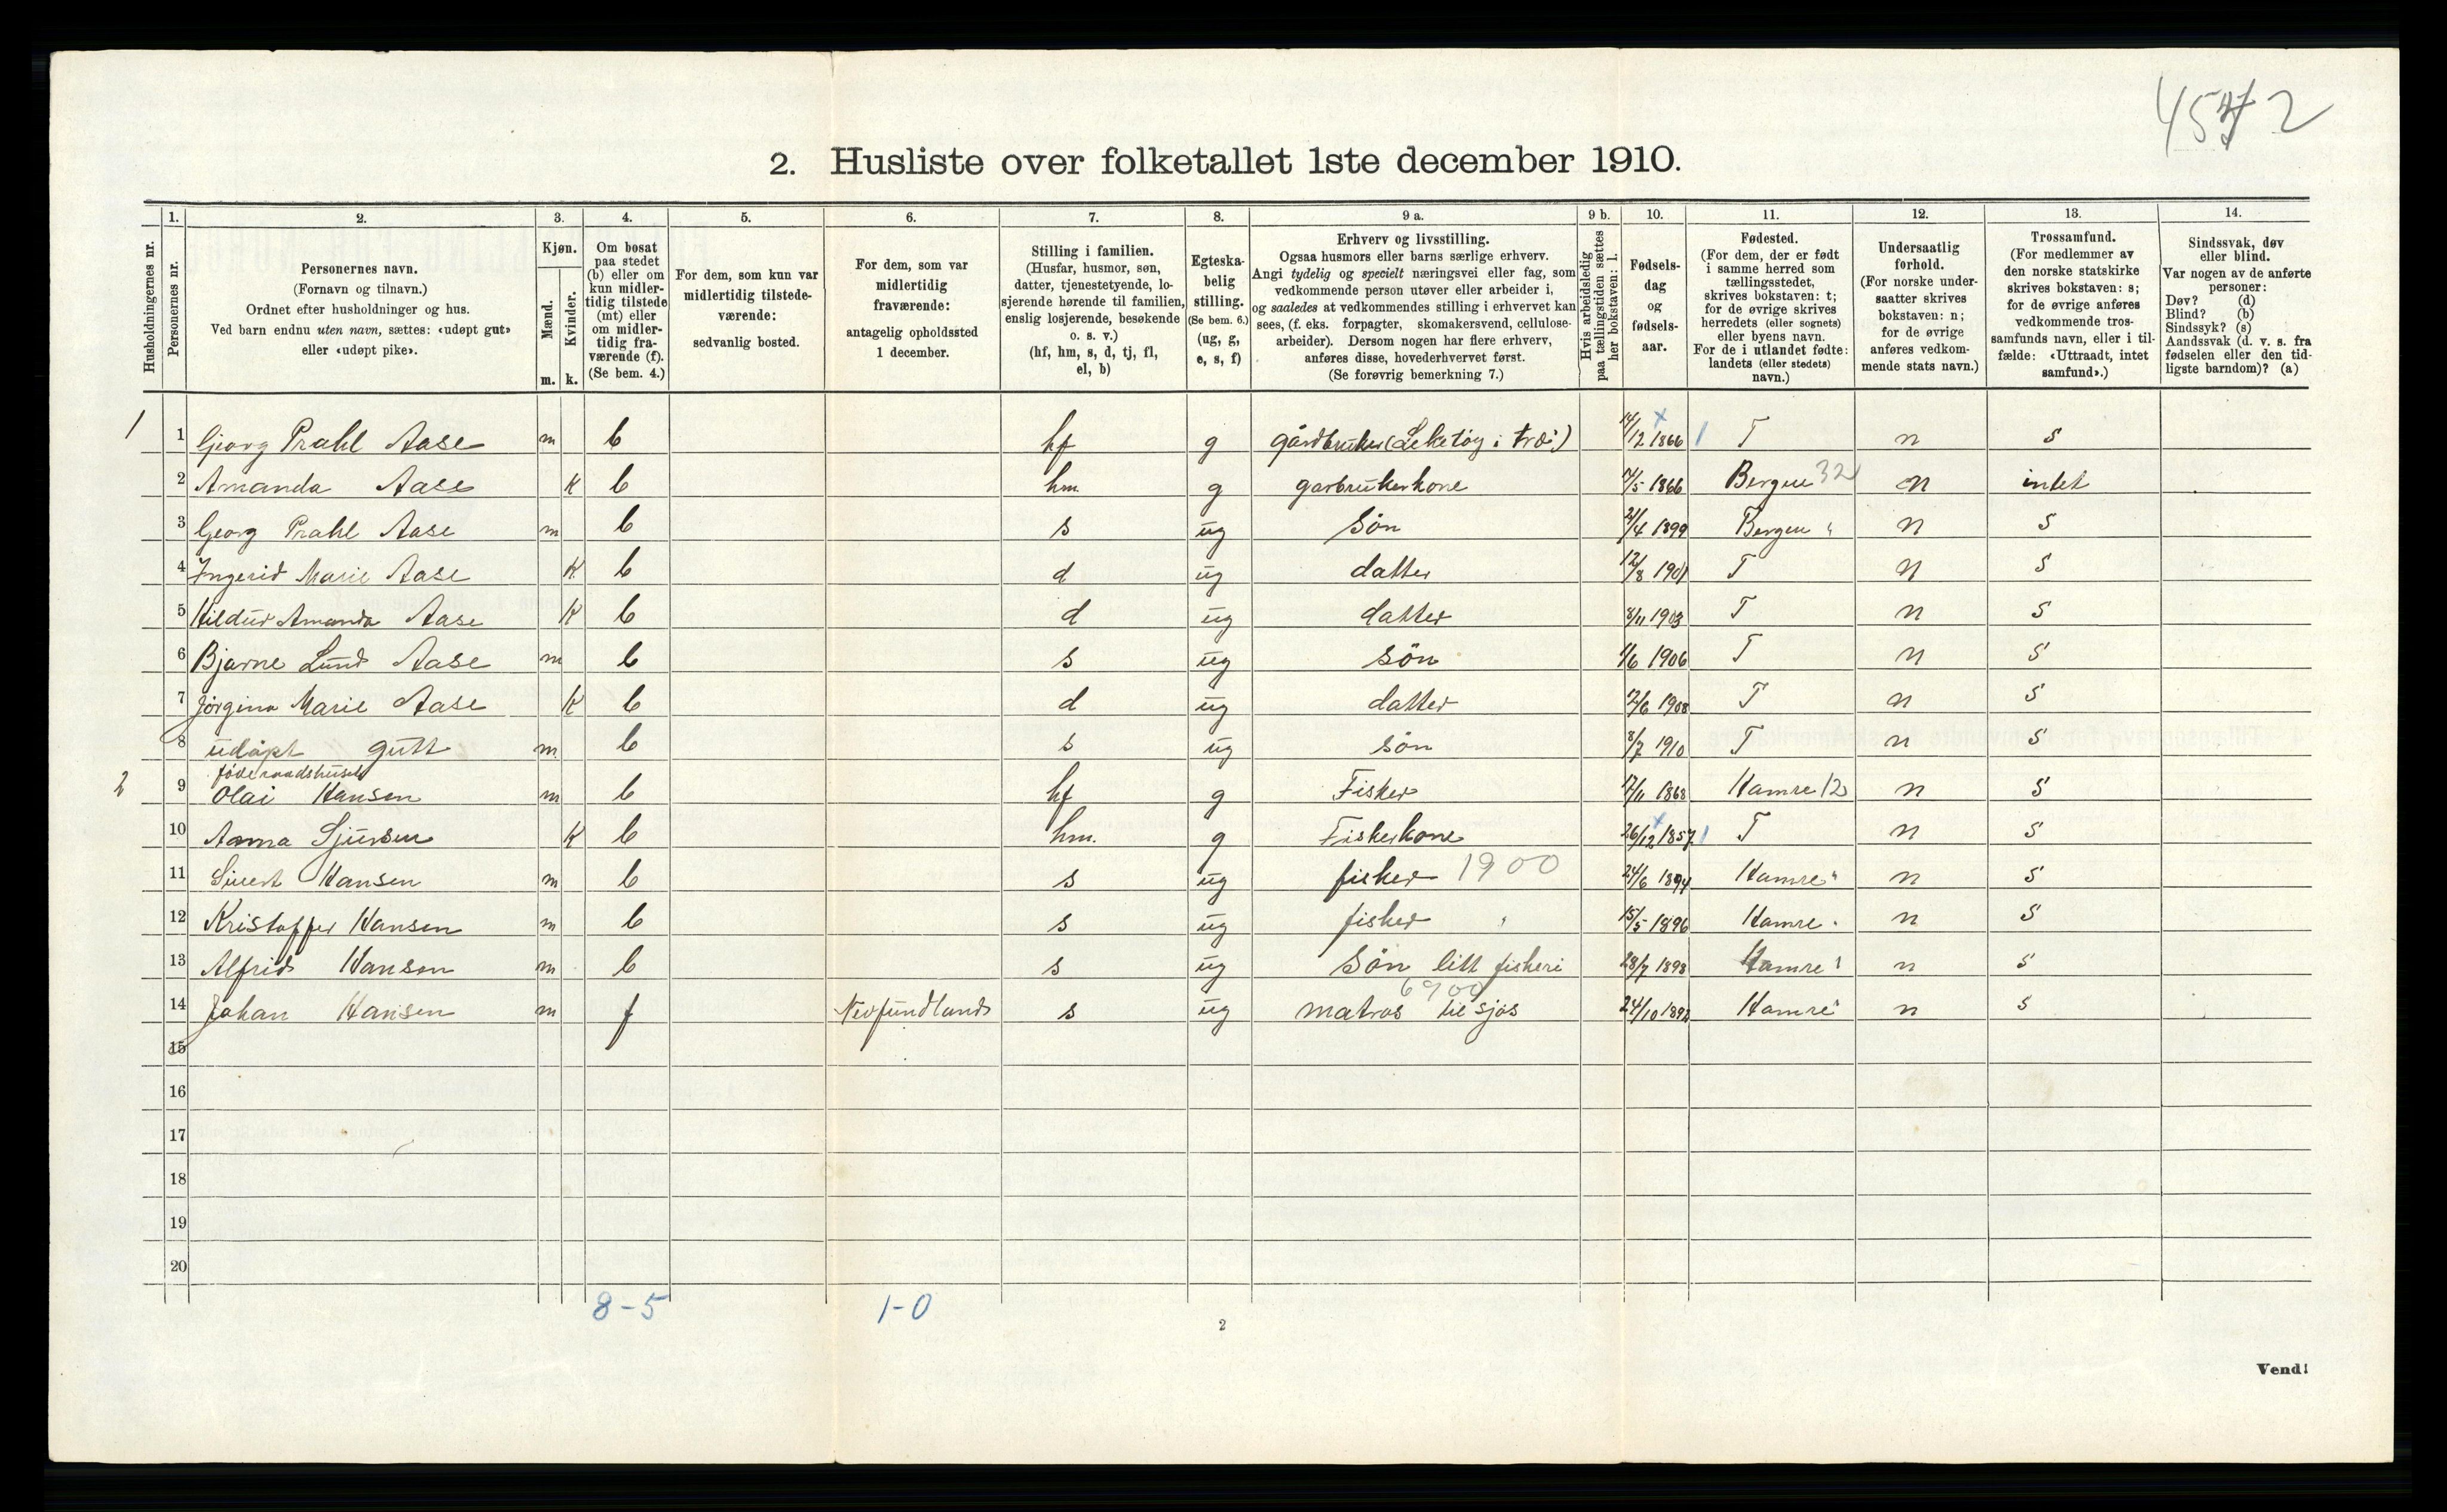 4572
2. Husliste over folketallet 1ste december 1910.
Husholdningernes nr.
1. Personernes nr.
2. Personernes navn. (Fornavn og tilnavn.) Ordnet efter husholdninger og hus. Ved barn endnu uten navn, sættes: «udøpt gut» eller «udøpt pike».
3. Kjøn. Mænd. m. Kvinder. k.
4. Om bosat paa stedet (b) eller om kun midler-tidig tilstede (mt) eller om midler-tidig fra-værende (f). (Se bem. 4.)
5. For dem, som kun var midlertidig tilstede-værende: sedvanlig bosted.
6. For dem, som var midlertidig fraværende: antagelig opholdssted 1 december.
7. Stilling i familien. (Husfar, husmor, søn, datter, tjenestetyende, lo-sjerende hørende til familien, enslig losjerende, besøkende o. s. v.) (hf, hm, s, d, tj, fl, el, b)
8. Egteska-belig stilling. (Se bem. 6.) (ug, g, e, s, f)
9 a. Erhverv og livsstilling. Ogsaa husmors eller barns særlige erhverv. Angi tydelig og specielt næringsvei eller fag, som vedkommende person utøver eller arbeider i, og saaledes at vedkommendes stilling i erhvervet kan sees, (f. eks. forpagter, skomakersvend, cellulose-arbeider). Dersom nogen har flere erhverv, anføres disse, hovederhvervet først. (Se forøvrig bemerkning 7.)
9 b. Hvis arbeidsledig paa tællingstiden sættes her bokstaven: l.
10. Fødsels-dag og fødsels-aar.
11. Fødested. (For dem, der er født i samme herred som tællingsstedet, skrives bokstaven: t; for de øvrige skrives herredets (eller sognets) eller byens navn. For de i utlandet fødte: landets (eller stedets) navn.)
12. Undersaatlig forhold. (For norske under-saatter skrives bokstaven: n; for de øvrige anføres vedkom-mende stats navn.)
13. Trossamfund. (For medlemmer av den norske statskirke skrives bokstaven: s; for de øvrige anføres vedkommende tros-samfunds navn, eller i til-fælde: «Uttraadt, intet samfund».)
14. Sindssvak, døv eller blind. Var nogen av de anførte personer: Døv? (d) Blind? (b) Sindssyk? (s) Aandssvak (d. v. s. fra fødselen eller den tid-ligste barndom)? (a)
1 1 Georg Prahl Aase m b hf g gårdbruker (Leketöy i træ) 14/12 1866 T n s
2 Amanda Aase K b hm g garbrukerkone /5 1866 Bergen 32 n intet
3 Georg Prahl Aase m b s ug Sön 21/4 1899 Bergen " n s
4 Ingerid Marie Aase K b d ug datter 12/8 1901 T n s
5 Hildur Amanda Aase K b d ug datter 8/11 1903 T n s
6 Bjarne Lund Aase m b s ug sön /6 1906 T n s
7 Jörgina Marie Aase K b d ug datter /6 1908 T n s
8 udöpt gutt m b s ug sön 8/7 1910 T n s
föderaadshuset
2 9 Olai Hansen m b hf g Fisker 17/11 1868 Hamre 12 n s
10 Anna Sjursen K b hm. g Fiskerkone 26/12 1857 T n s
11 Sivert Hansen m b s ug fisker 1900 24/6 1894 Hamre " n s
12 Kristoffer Hansen m b s ug fisker " 15/5 1896 Hamre " n s
13 Alfrid Hansen m b s ug Sön litt fiskeri 28/7 1898 Hamre " n s
6900
14 Johan Hansen m f Nevfundland s ug matros til sjös 24/10 1892 Hamre " n s
15
16
17
18
19
20
8-5 1-0
2
Vend!